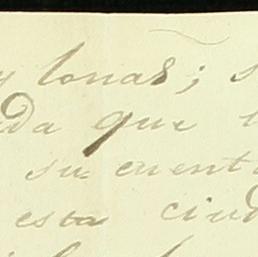 y lonas; s
da que
su cuent
esta ciud